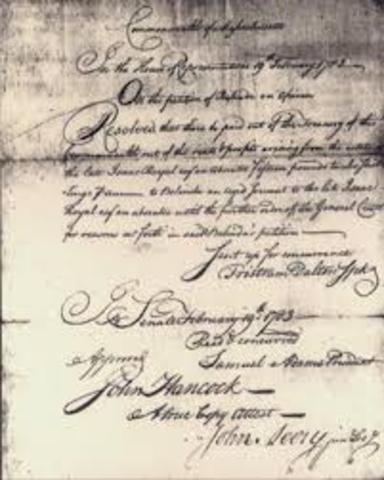 Commonwealth of Massachusetts
In the House of Representatives 19th February 1783
On the petition of Belinda an African
Resolved that there be paid out of the Treasury of this
Commonwealth out of the rents & profits arising from the estate of
the late Isaac Royal esqr an absentee fifteen pounds twelve shil
lings P annum to Belinda an aged servant to the late Isaac
Royal esqr an absentee until the further order of the General Court
for reasons set forth in said Belinda's petition —
Sent up for concurrence
Tristram Dalton Spkr
In Senate February 19th 1783
Read & concurred
Samuel Adams President
Approved
John Hancock —
A true Copy Attest —
John Avery